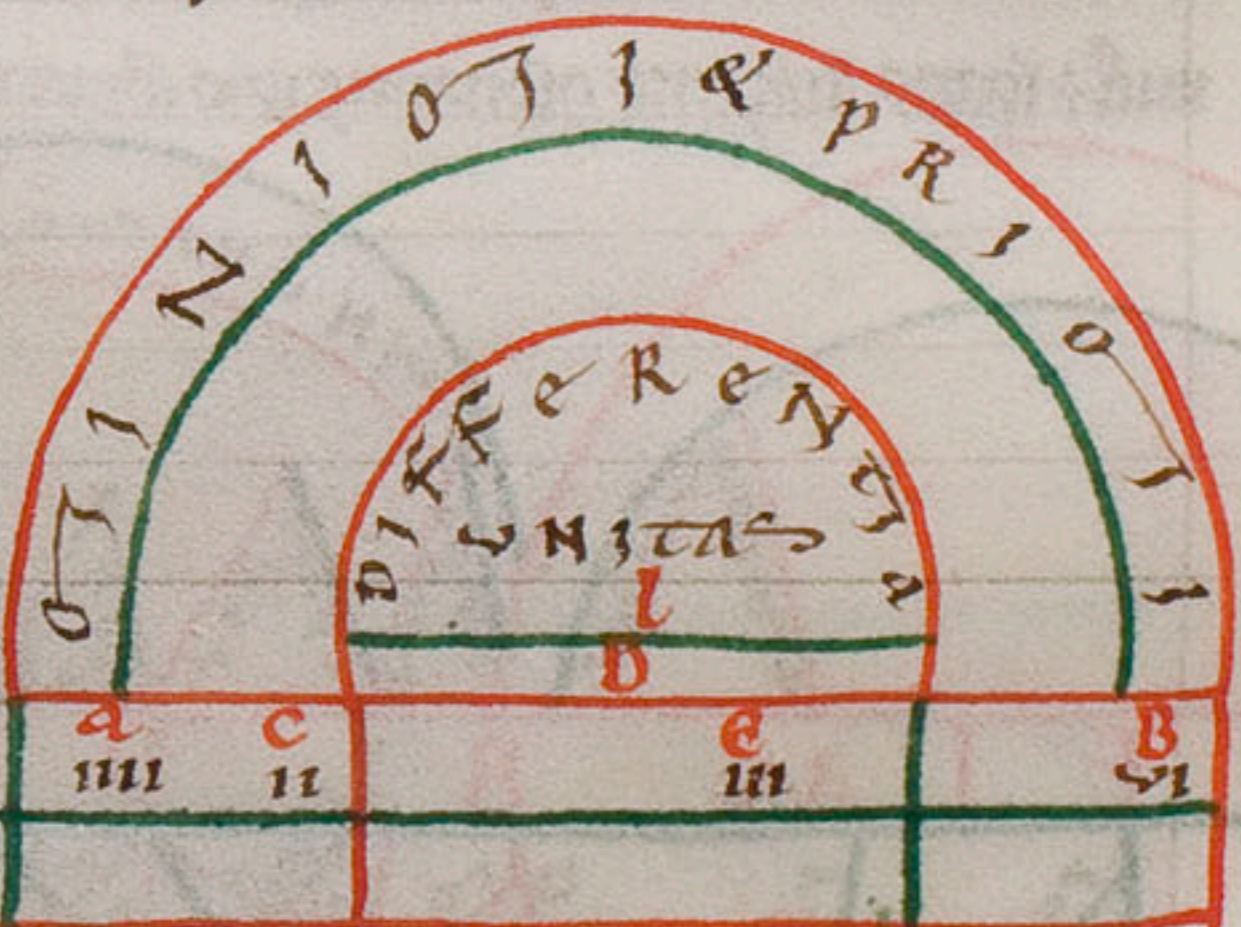 MINIMI & PRIMI
DIFFERENTIA
UNITAS
l
D
a c e B
IIII II III VI